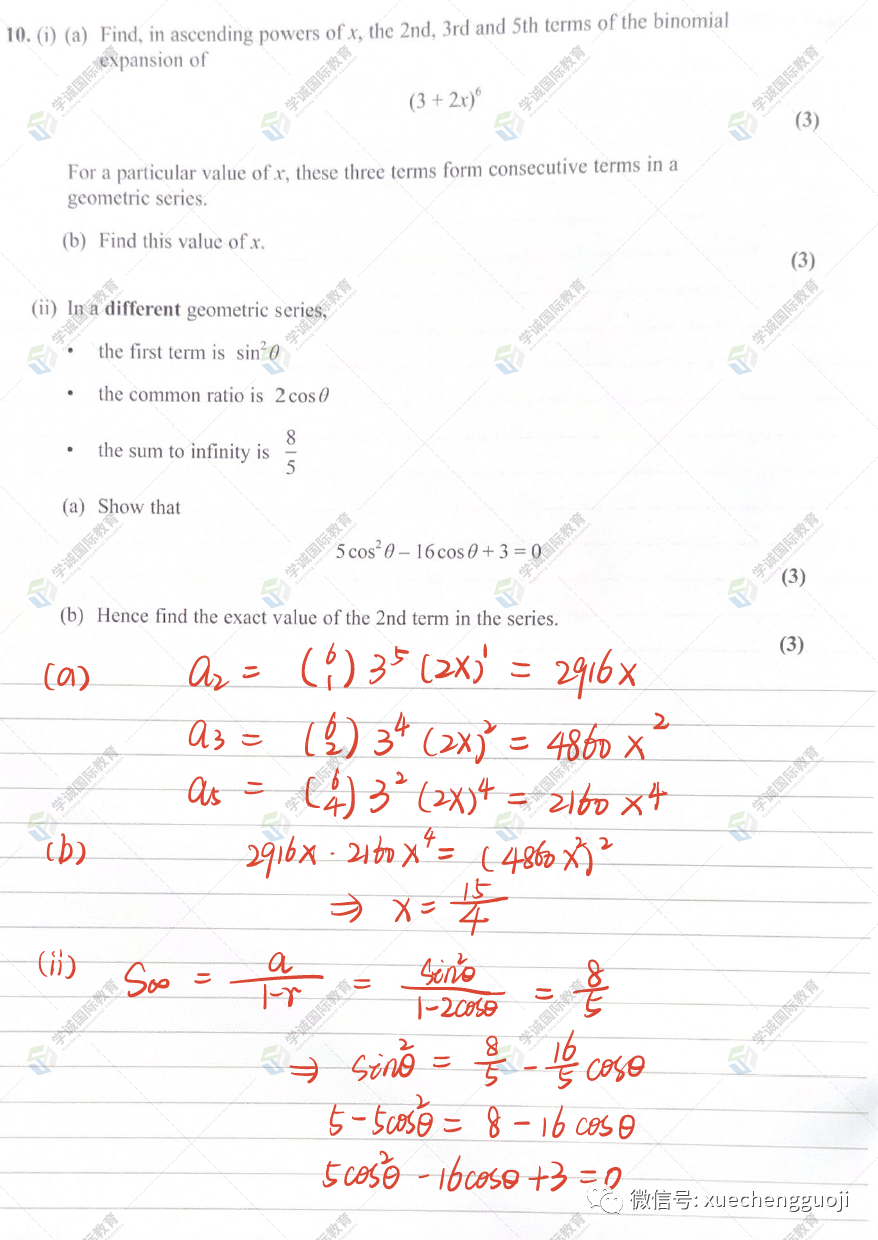 10. (i) (a) Find, in ascending powers of x, the 2nd, 3rd and 5th terms of the binomial
expansion of
(3 + 2x)⁶
(3)
For a particular value of x, these three terms form consecutive terms in a
geometric series.
(b) Find this value of x.
(3)
(ii) In a different geometric series,
• the first term is sin²θ
• the common ratio is 2cosθ
• the sum to infinity is 8/5
(a) Show that
5cos²θ – 16cosθ + 3 = 0
(3)
(b) Hence find the exact value of the 2nd term in the series.
(3)
(a) a₂ = (6 1) 3⁵ (2x)¹ = 2916x
a₃ = (6 2) 3⁴ (2x)² = 4860x²
a₅ = (6 4) 3² (2x)⁴ = 2160x⁴
(b) 2916x · 2160x⁴ = (4860x²)²
⇒ x = 15/4
(ii) S∞ = a/(1-r) = sin²θ/(1-2cosθ) = 8/5
⇒ sin²θ = 8/5 - 16/5 cosθ
5 - 5cos²θ = 8 - 16cosθ
5cos²θ - 16cosθ + 3 = 0
微信号: xuechengguoji
学诚国际教育